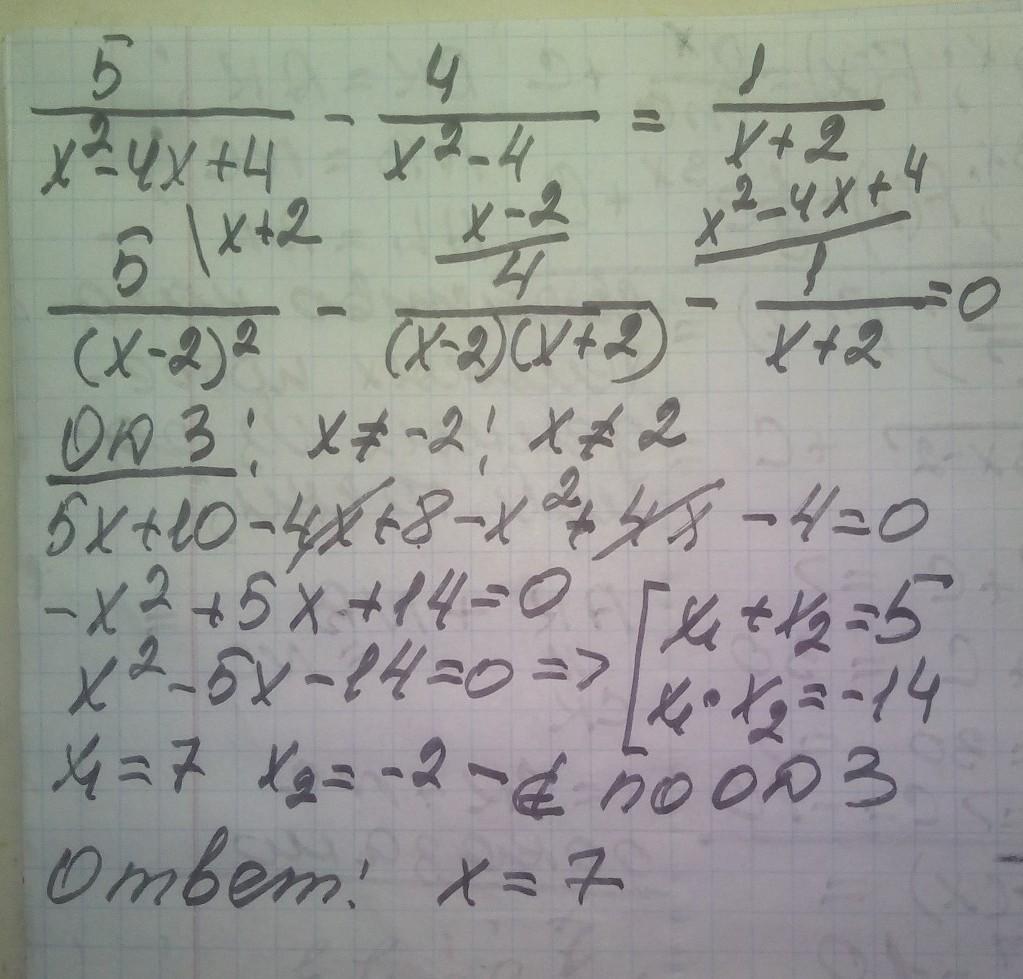 5/(x²-4x+4) - 4/(x²-4) = 1/(x+2)
5\x+2/(x-2)² - 4\x-2/((x-2)(x+2)) - 1\x²-4x+4/(x+2) = 0
ОДЗ: x≠-2; x≠2
5x+10-4x+8-x²+4x-4=0
-x²+5x+14=0
x²-5x-14=0 => [x₁+x₂=5
x₁·x₂=-14
x₁=7 x₂=-2 - ∉ по ОДЗ
Ответ: x=7